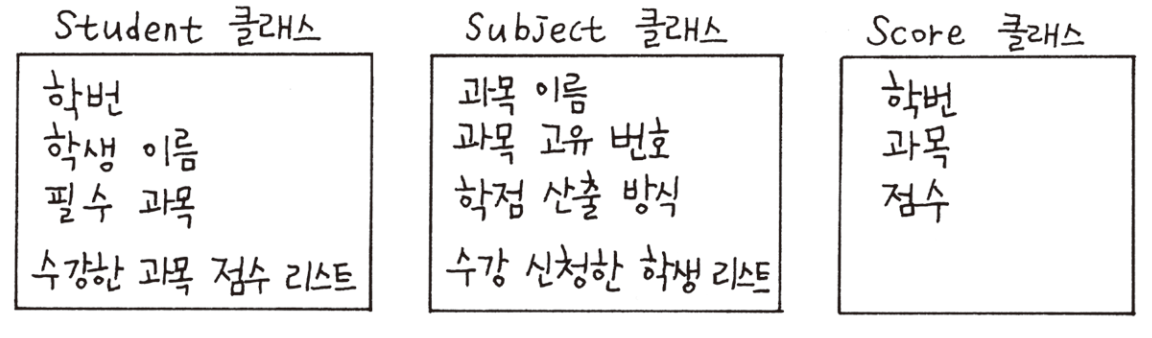 Student 클래스
학번
학생 이름
필수 과목
수강한 과목 점수 리스트
Subject 클래스
과목 이름
과목 고유 번호
학점 산출 방식
수강 신청한 학생 리스트
Score 클래스
학번
과목
점수